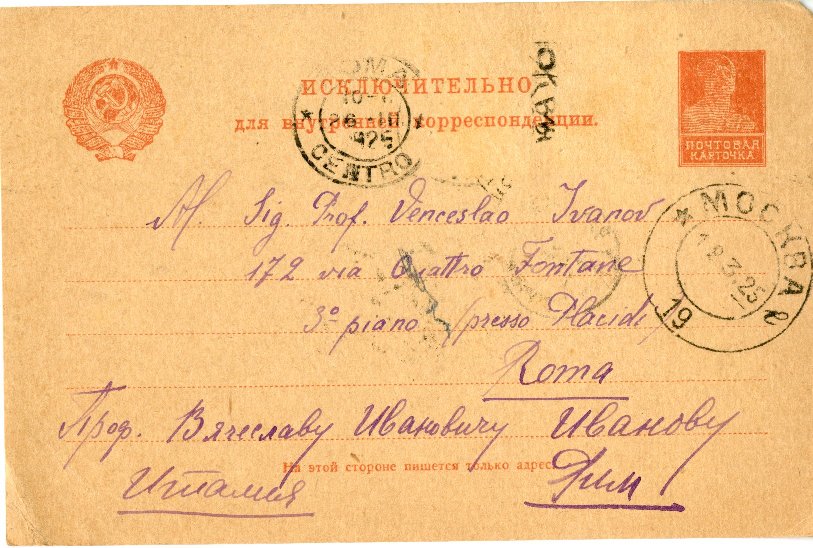 ROMA
CENTRO
ИСКЛЮЧИТЕЛЬНО
для внутренней корреспонденции.
ПОЧТОВАЯ
КАРТОЧКА
Al. Sig. Prof. Venceslao Ivanov
172 via Quattro Fontane
3º piano (presso Placidi)
Roma
МОСКВА
12.3.25
19
Проф. Вячеславу Ивановичу Иванову
На этой стороне пишется только адрес.
Италия Рим